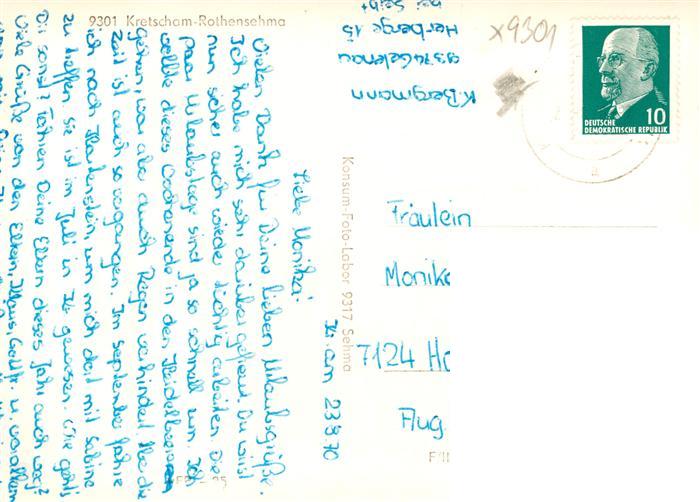 9301 Kretscham-Rothensehma
x9301
bei Seibt
Herberge 15
9374 Gelenau
K. Bergmann
DEUTSCHE
DEMOKRATISCHE REPUBLIK
10
Konsum-Foto-Labor 9317 Sehma
23.8.70
Liebe Monika!
Vielen Dank für Deine lieben Urlaubsgrüße.
Ich habe mich sehr darüber gefreut. Du wirst
nun sicher auch wieder tüchtig arbeiten. Die
paar Urlaubstage sind ja so schnell um. Ich
wollte dieses Wochenende in den
gehen, war aber auch Regen verhindert.
Zeit ist auch so vergangen. Im September fahre
ich nach um mich dort mit Sabine
zu treffen sie ist im Juli in gewesen. Wie geht's
Dir sonst? Fahren Deine Eltern dieses Jahr auch weg?
Viele Grüße von den Eltern, Klaus, u. vor allem
Fräulein
Monika
7124 Ho
Flug